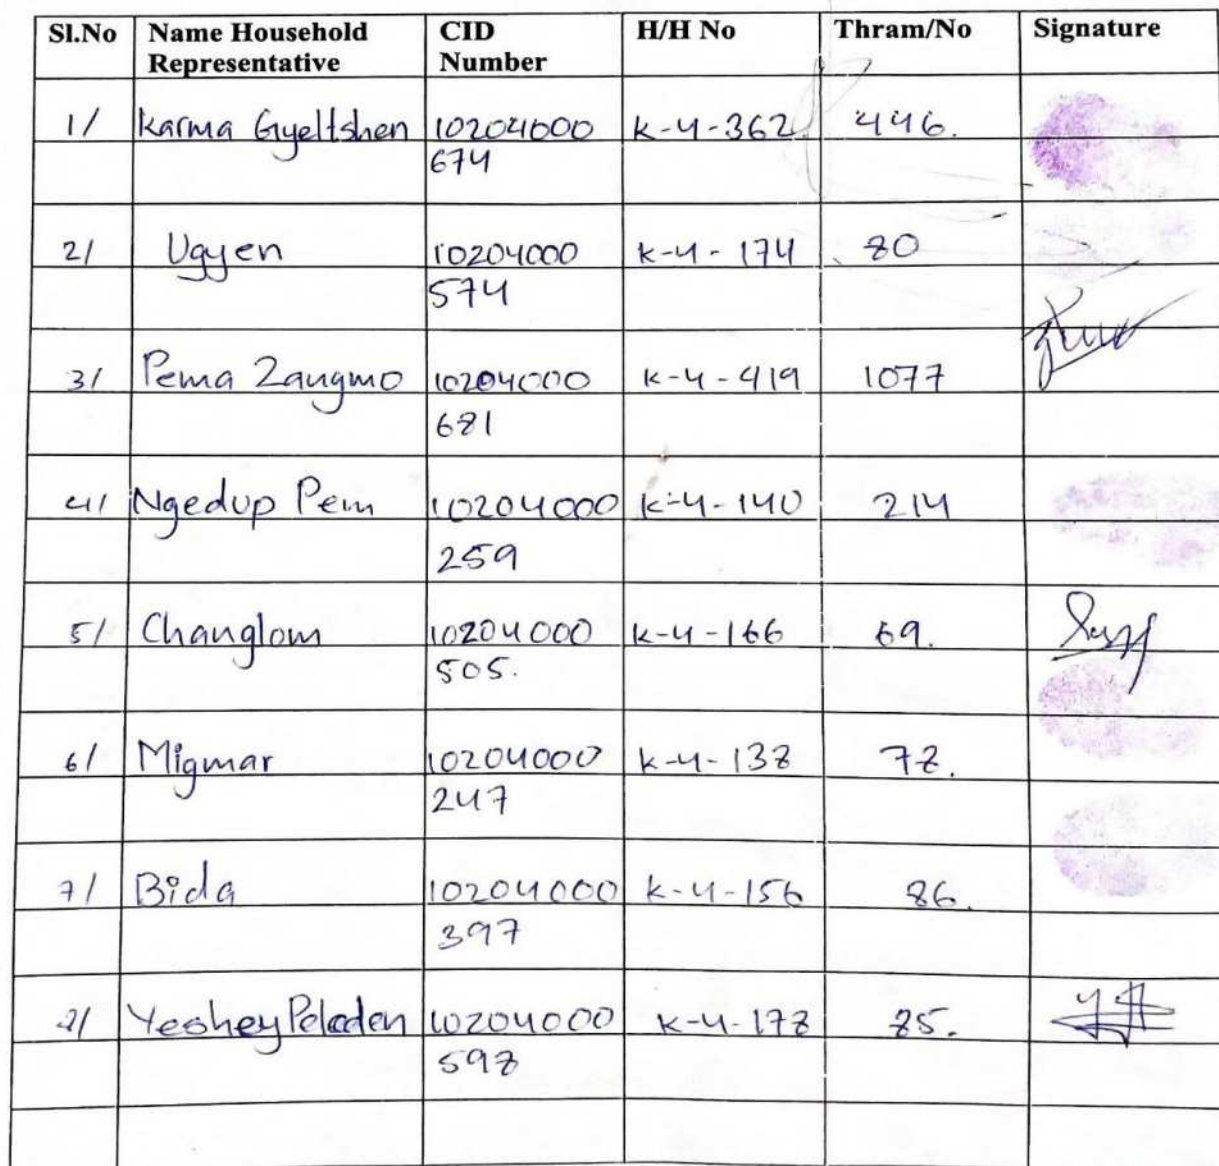 Sl.No Name Household Representative CID Number H/H No Thram/No Signature
1/ Karma Gyeltshen 10204000 K-4-362 446.
674
2/ Ugyen 10204000 K-4-174 80
574
3/ Pema Zangmo 10204000 K-4-419 1077
681
4/ Ngedup Pem 10204000 K-4-140 214
259
5/ Changlom 10204000 K-4-166 69.
505.
6/ Migmar 10204000 K-4-138 78.
247
7/ Bida 10204000 K-4-156 86.
397
8/ Yeshey Peladen 10204000 K-4-178 85.
598